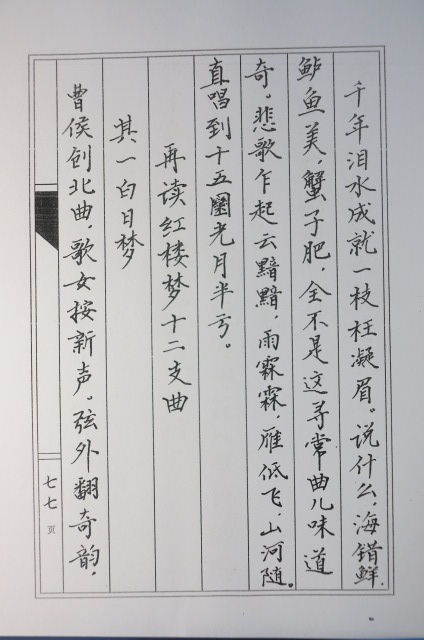 千年泪水成就一枝枉凝眉。说什么,海错鲜,
鲈鱼美,蟹子肥,全不是这寻常曲儿味道
奇。悲歌乍起云黯黯,雨霖霖,雁低飞,山河随。
直唱到十五圈光月半亏。
再读红楼梦十二支曲
其一白日梦
曹侯创北曲,歌女按新声。弦外翻奇韵,
七七页